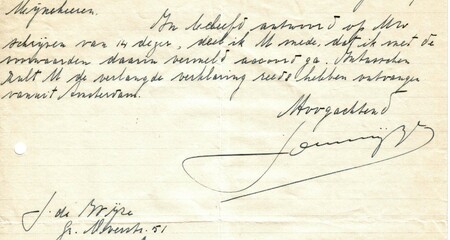 Mijneheeren.
In beleefd antwoord op Uw
schrijven van 14 dezer, deel ik U mede, dat ik met de
voorwaarden daarin vermeld accoord ga. Intusschen
zult U de verlangde verklaring reeds hebben ontvangen
vanuit Amsterdam.
Hoogachtend
J. de Wijze
Gr.
51